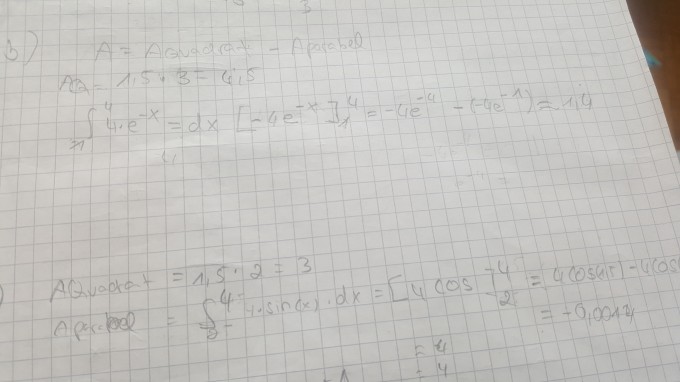 b) A = AQuadrat - Aparabel
AQ = 1,5 · 3 = 4,5
∫₁⁴ 4·e^-x = dx [-4e^-x]₁⁴ = -4e^-4 - (-4e^-1) = 1,4
AQuadrat = 1,5 · 2 = 3
Aparabel = ∫₂⁴ 4·sin(x)·dx = [4 cos ]₂⁴ =
= -0,0014
= 4
= 4